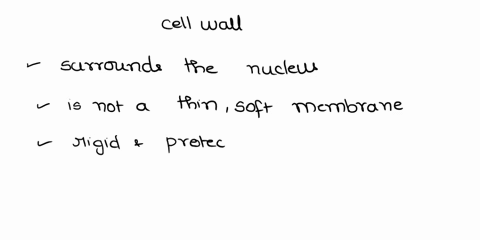 cell wall
✓ surrounds the nucleus
✓ is not a thin, soft membrane
✓ rigid & protec